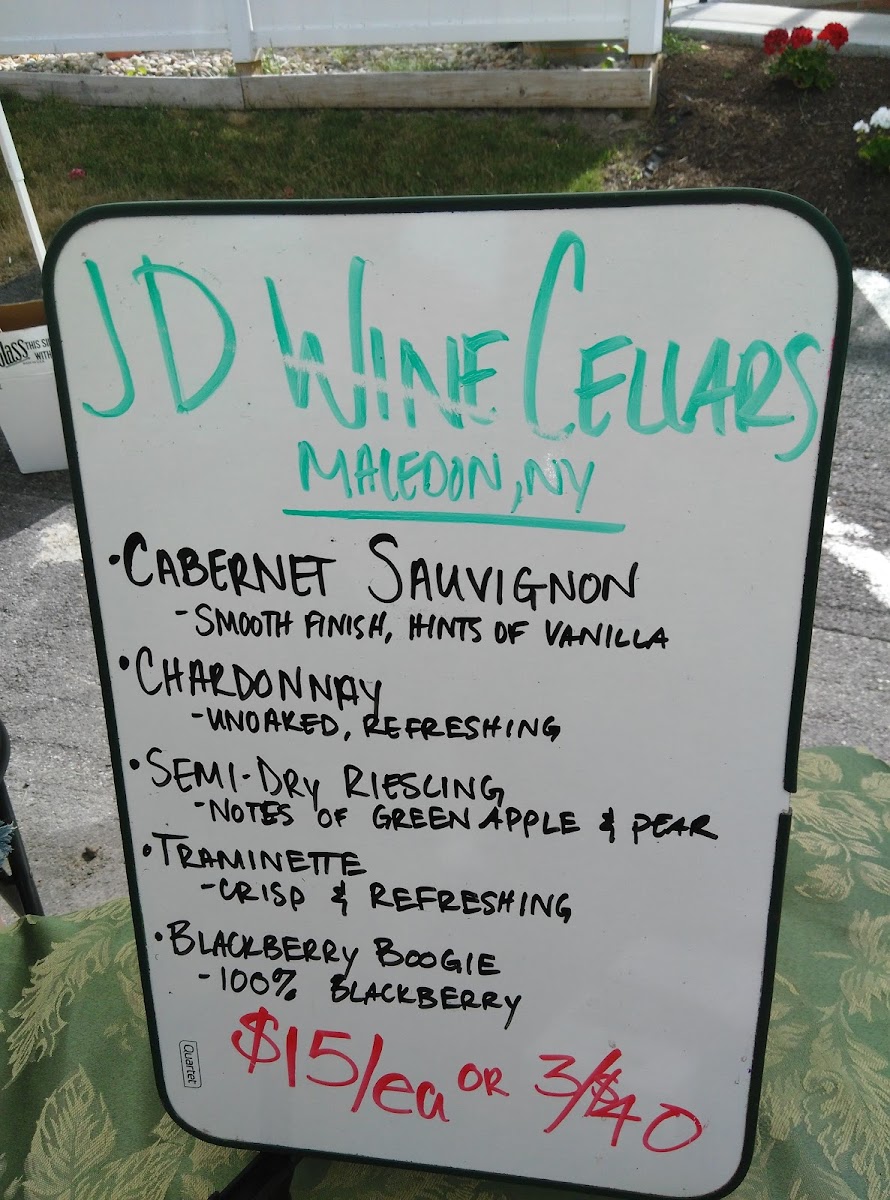 JD WINE CELLARS
MACEDON, NY
• CABERNET SAUVIGNON
- SMOOTH FINISH, HINTS OF VANILLA
• CHARDONNAY
- UNOAKED, REFRESHING
• SEMI-DRY RIESLING
- NOTES OF GREEN APPLE & PEAR
• TRAMINETTE
- CRISP & REFRESHING
• BLACKBERRY BOOGIE
- 100% BLACKBERRY
$15/ea OR 3/$40
Quartet
THIS
WITH